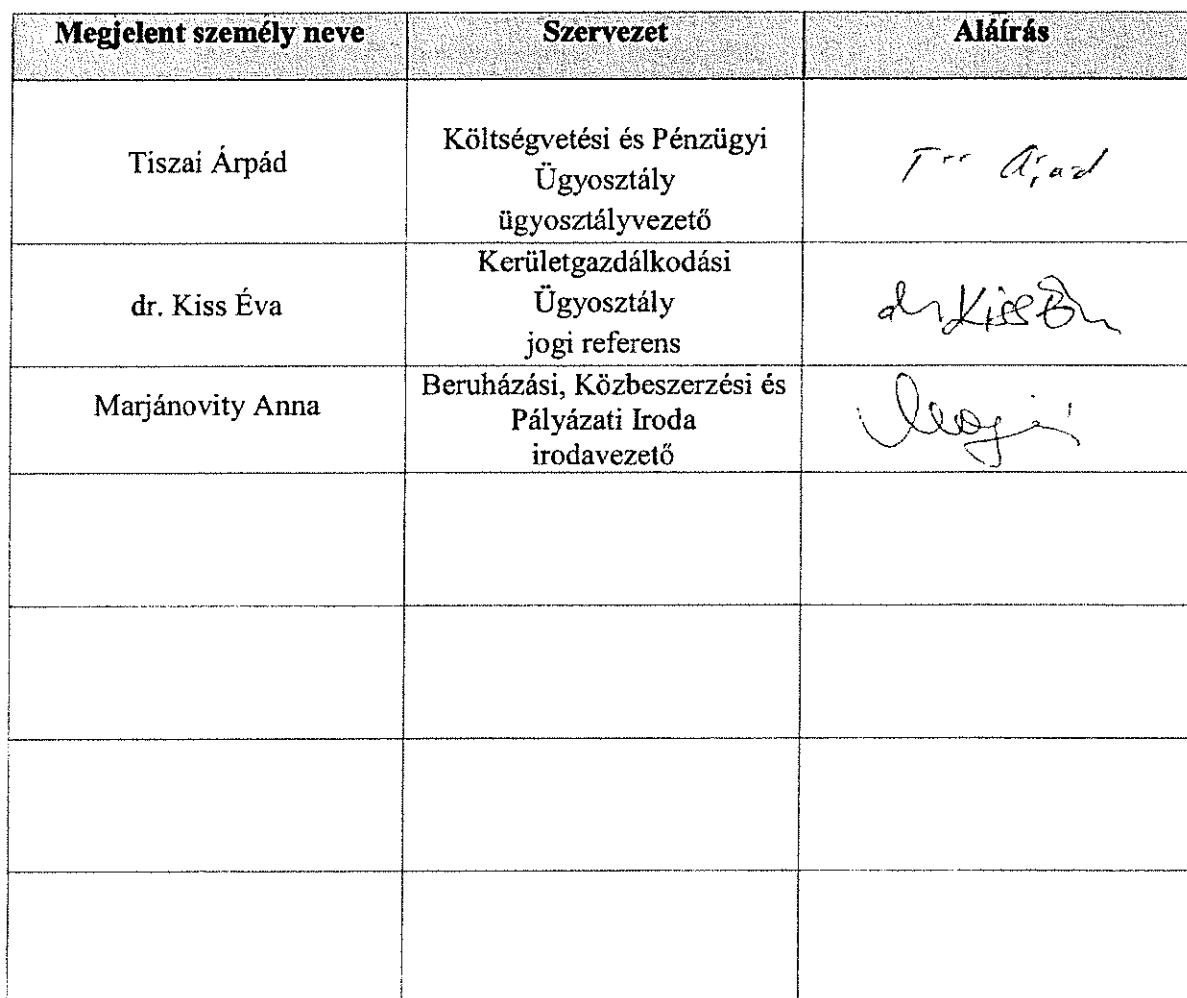 Megjelent személy neve Szervezet Aláírás
Tiszai Árpád
Költségvetési és Pénzügyi
Ügyosztály
ügyosztályvezető
dr. Kiss Éva
Kerületgazdálkodási
Ügyosztály
jogi referens
dr Kiss Éva
Marjánovity Anna
Beruházási, Közbeszerzési és
Pályázati Iroda
irodavezető